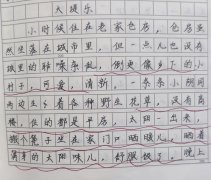 大嬢乐
小时候住在老家仓房，仓房虽
然坐落在城市里，但一点儿也没有
城里的那嘈杂乱，倒更像乡下的小
村子，可爱，清新，一条条小胡同
两边生着各种野生花草，没有高
楼，住的都是平房，太阳一出来，
搬个凳子坐在家门口晒暖儿，晒着
满身的太阳味儿，舒服极了，晚上